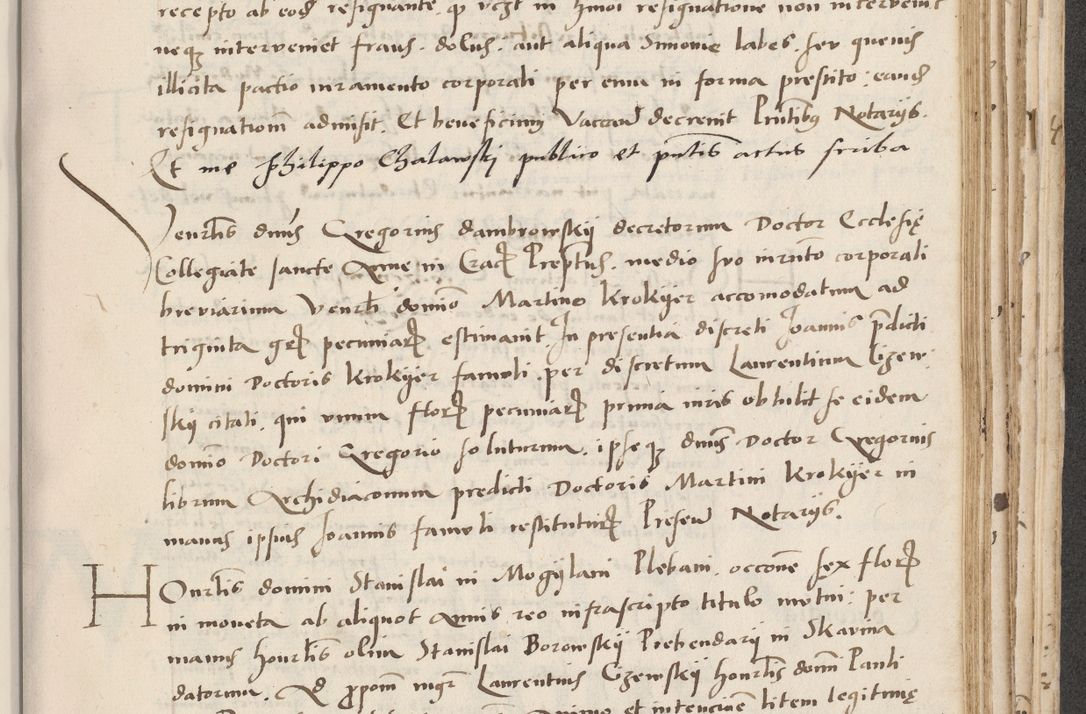 recepto ab eod resignante, q vczt in hmoi resignatione non intervenit
neqz interveniet fraus, dolus, aut aliqua Simonie labes, seu quevis
illicita pactio iuramento corporali per eum in forma prestito, eand
resignationem admisit, Et beneficium vaccare decrevit Pntibus Notarijs.
Et me Philippo Chalawski publico et pntis actus scriba
Venrlis dnus Gregorius dambrowskij decretorum Doctor Ecclesię
Collegiate sancte Anne in Crac Preptus, medio suo iurnto corporali
breviarium Venrli domino Martino Krokyer accomodatum ad
triginta grs pecuniar estimavit In presentia discreti Joannis prdicti
domini Doctoris Krokijer famuli per discretum Laurentium Czew-
skij citati, qui unum flor pecuniar prima iuris obtulit se eidem
domino Doctori Gregorio soluturum, ipseqz dnus Doctor Gregorius
librum Archidiaconum predicti Doctoris Martini Krokijer in
manus ipsius Joannis famuli restituturum Presen Notarijs.
HOnrlis domini Stanislai in Mogylani Plebani, occone sex flor
in moneta ab aliquot annis reo infrascripto titulo mutui, per
manus honrlis olim Stanislai Borowskij Prebendarij in Skavina
datorum, Ad propom mgr Laurentius Czewskij honrlis domi Pauli
et intencione litem legitimę